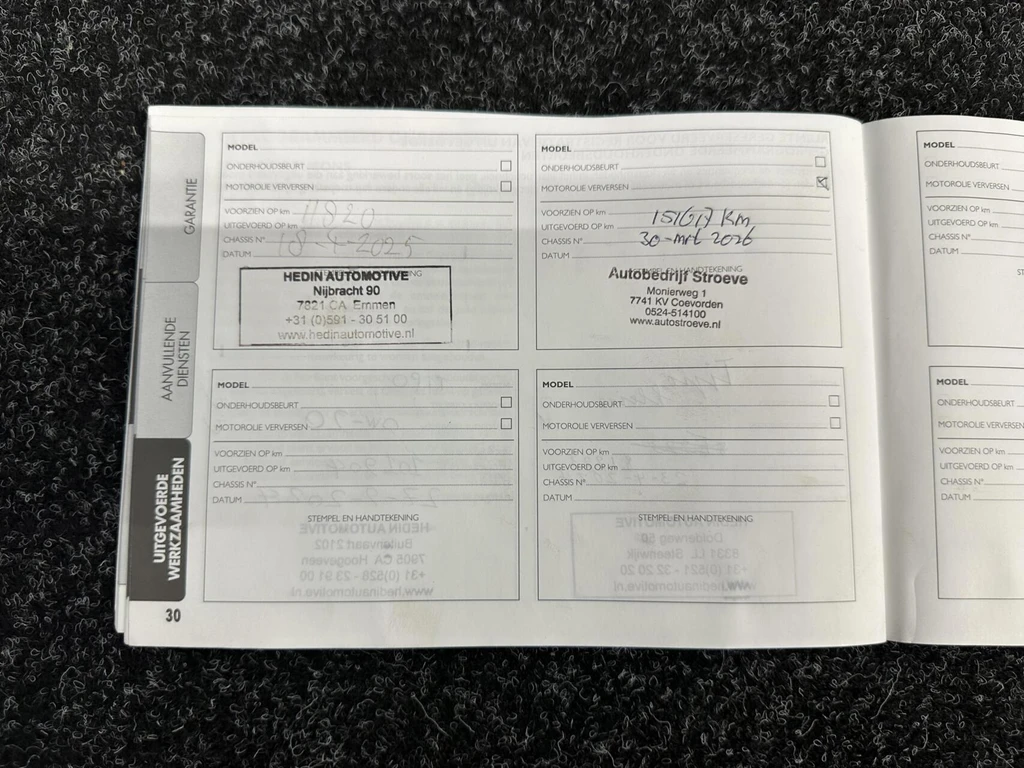 GARANTIE
AANVULLENDE
DIENSTEN
UITGEVOERDE
WERKZAAMHEDEN
30
MODEL
ONDERHOUDSBEURT
MOTOROLIE VERVERSEN
VOORZIEN OP km
UITGEVOERD OP km 11820
CHASSIS N°
DATUM 18-4-2025
HEDIN AUTOMOTIVE
Nijbracht 90
7821 CA Emmen
+31 (0)591 - 30 51 00
www.hedinautomotive.nl
MODEL
ONDERHOUDSBEURT
MOTOROLIE VERVERSEN
VOORZIEN OP km
UITGEVOERD OP km Km
CHASSIS N° 30-mrt 2026
DATUM
STEMPEL EN HANDTEKENING
Autobedrijf Stroeve
Monierweg 1
7741 KV Coevorden
0524-514100
www.autostroeve.nl
MODEL
ONDERHOUDSBEURT
MOTOROLIE VERVERSEN
VOORZIEN OP km
UITGEVOERD OP km
CHASSIS N°
DATUM
STEMPEL EN HANDTEKENING
MODEL
ONDERHOUDSBEURT
MOTOROLIE VERVERSEN
VOORZIEN OP km
UITGEVOERD OP km
CHASSIS N°
DATUM
STEMPEL EN HANDTEKENING
MODEL
ONDERHOUDSBEURT
MOTOROLIE VERVERSEN
VOORZIEN OP km
UITGEVOERD OP km
CHASSIS N°
DATUM
MODEL
ONDERHOUDSBEURT
MOTOROLIE VERVERSEN
VOORZIEN OP km
UITGEVOERD OP km
CHASSIS N°
DATUM